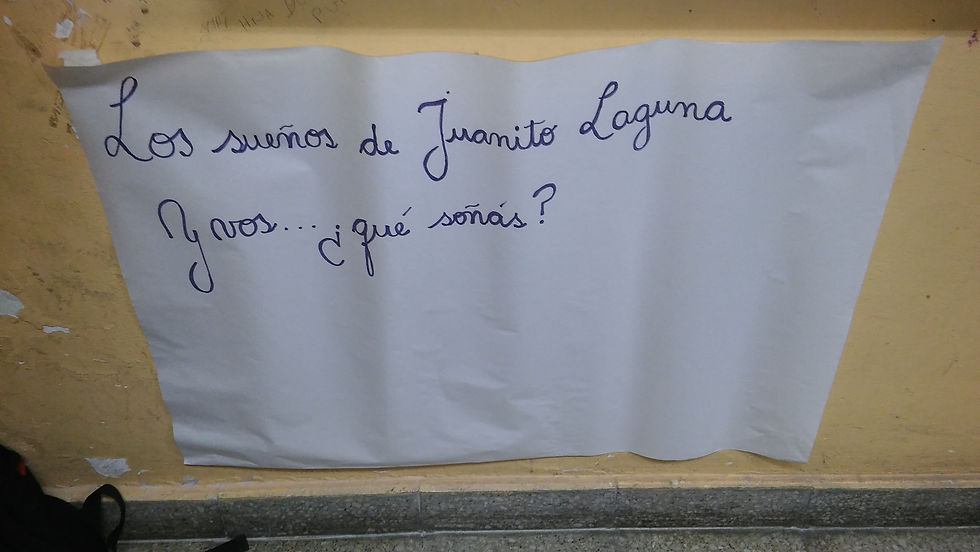 Los sueños de Juanito Laguna
Y vos... ¿qué soñás?